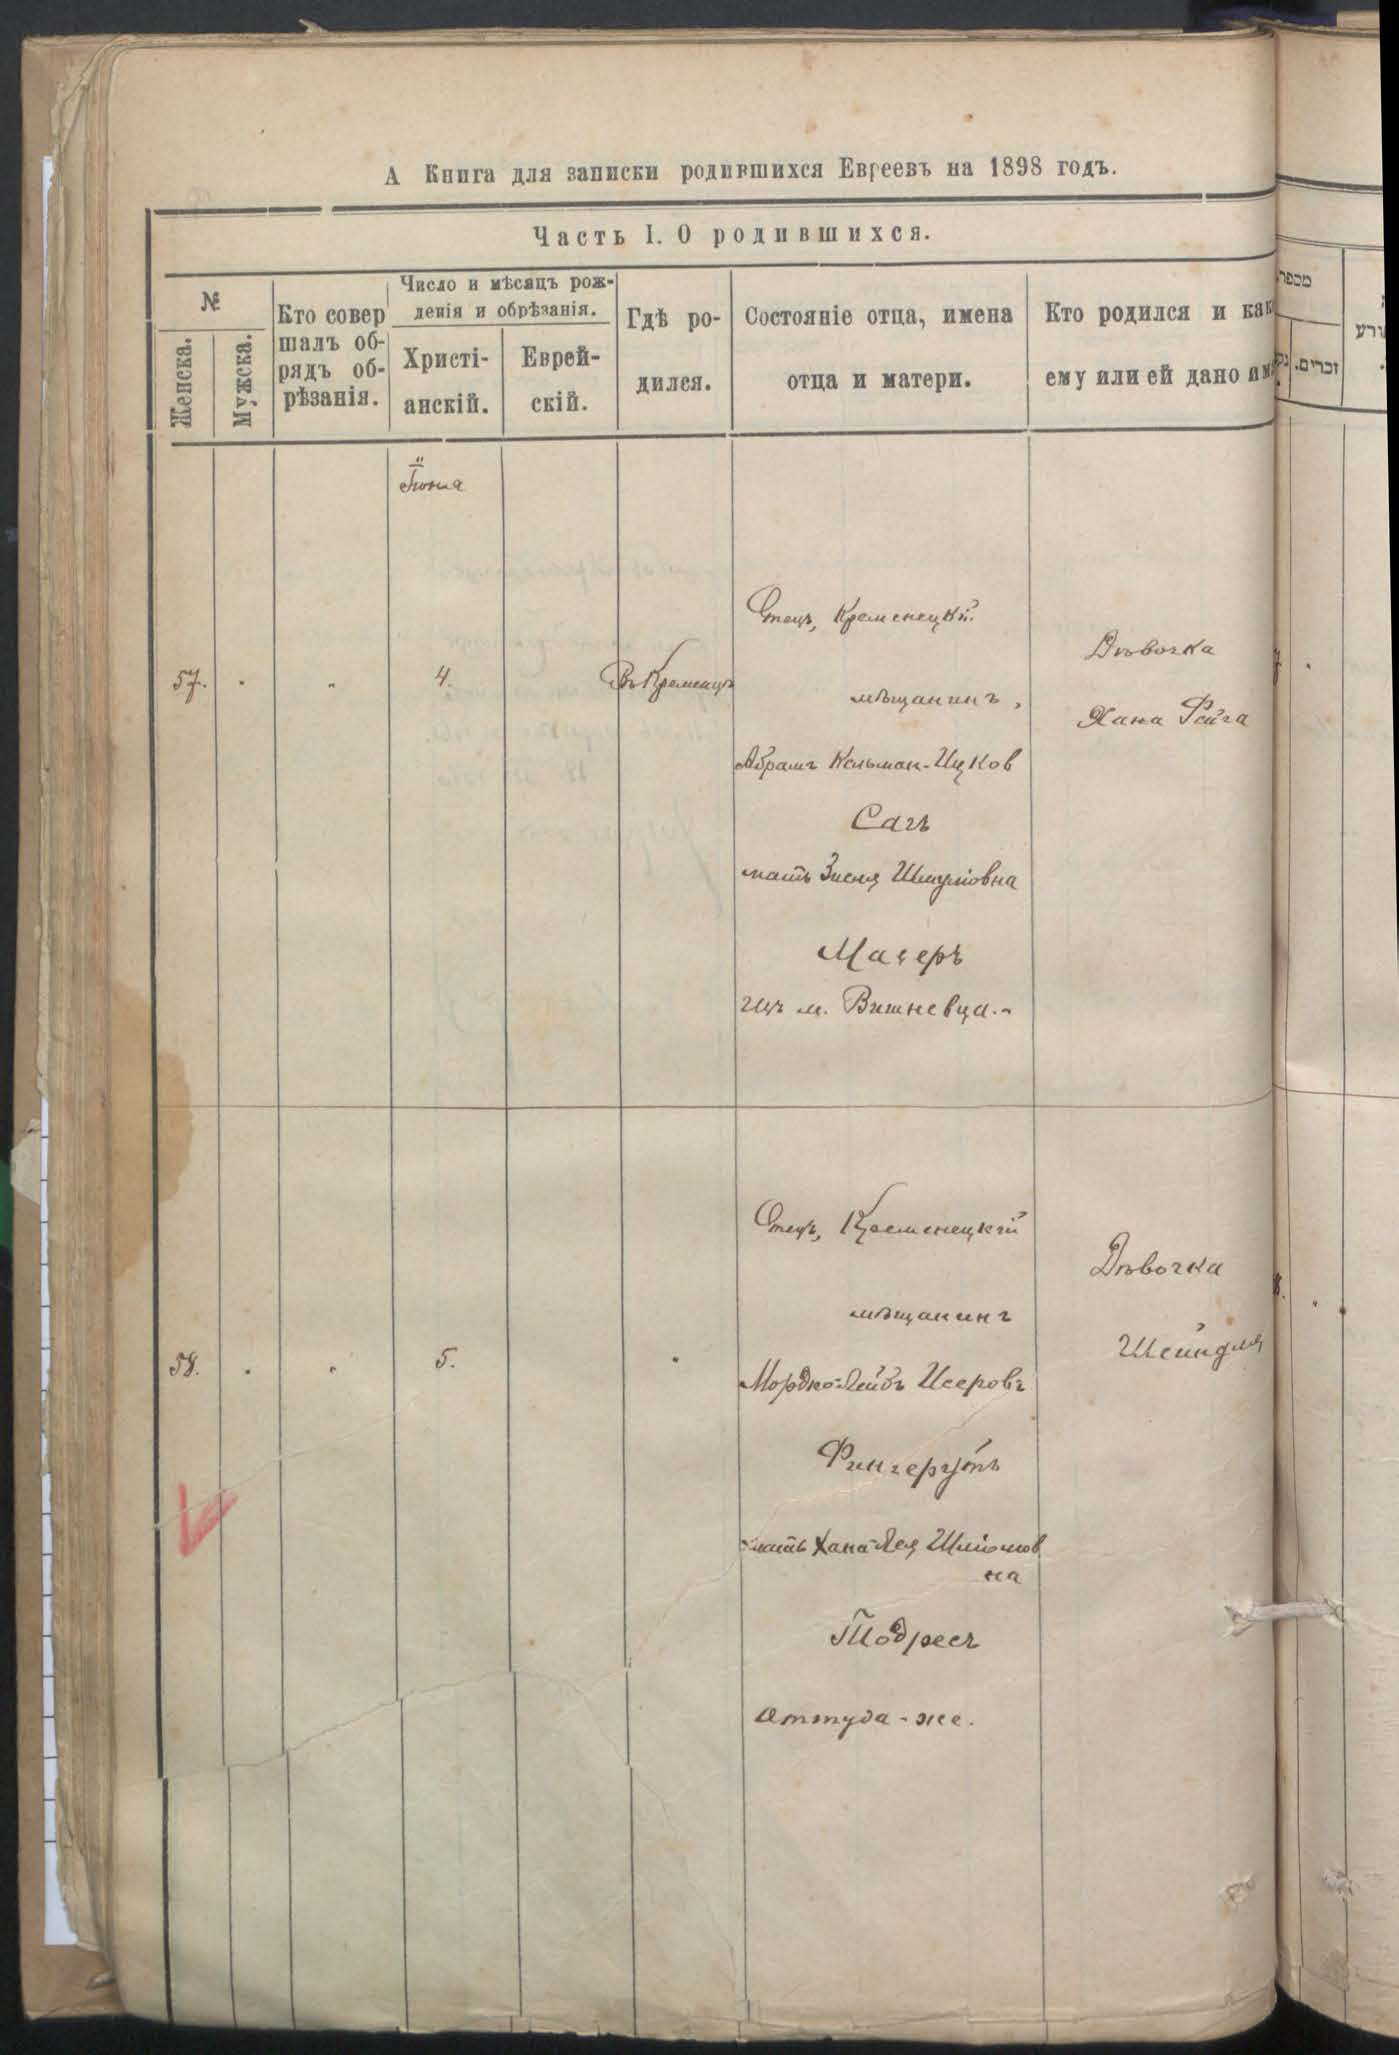 А Книга для записки родившихся Евреевъ на 1898 годъ.
Часть I. О родившихся.
№
Женска.
Мужска.
Кто совер
шалъ об-
рядъ об-
рѣзанія.
Число и мѣсяцъ рож-
денія и обрѣзанія.
Христі-
анскій.
Еврей-
скій.
Гдѣ ро-
дился.
Состояніе отца, имена
отца и матери.
Кто родился и как
ему или ей дано им
Іюня
57.
4.
Въ Кременцѣ
Отецъ, Кременецкій
мѣщанинъ,
Абрамъ Кельман-Ицков
Сагъ
мать Зисля Шмуловна
Мацеръ
изъ м. Вишневца.-
Дѣвочка
Хана Фейга
58.
5.
Отецъ, Кременецкій
мѣщанинъ
Мордко-Лейбъ Исеровъ
Фингергутъ
мать Хана-Лея Шліомов
на
Тодресъ
оттуда-же.
Дѣвочка
Шейндля
מספר
זכרים.